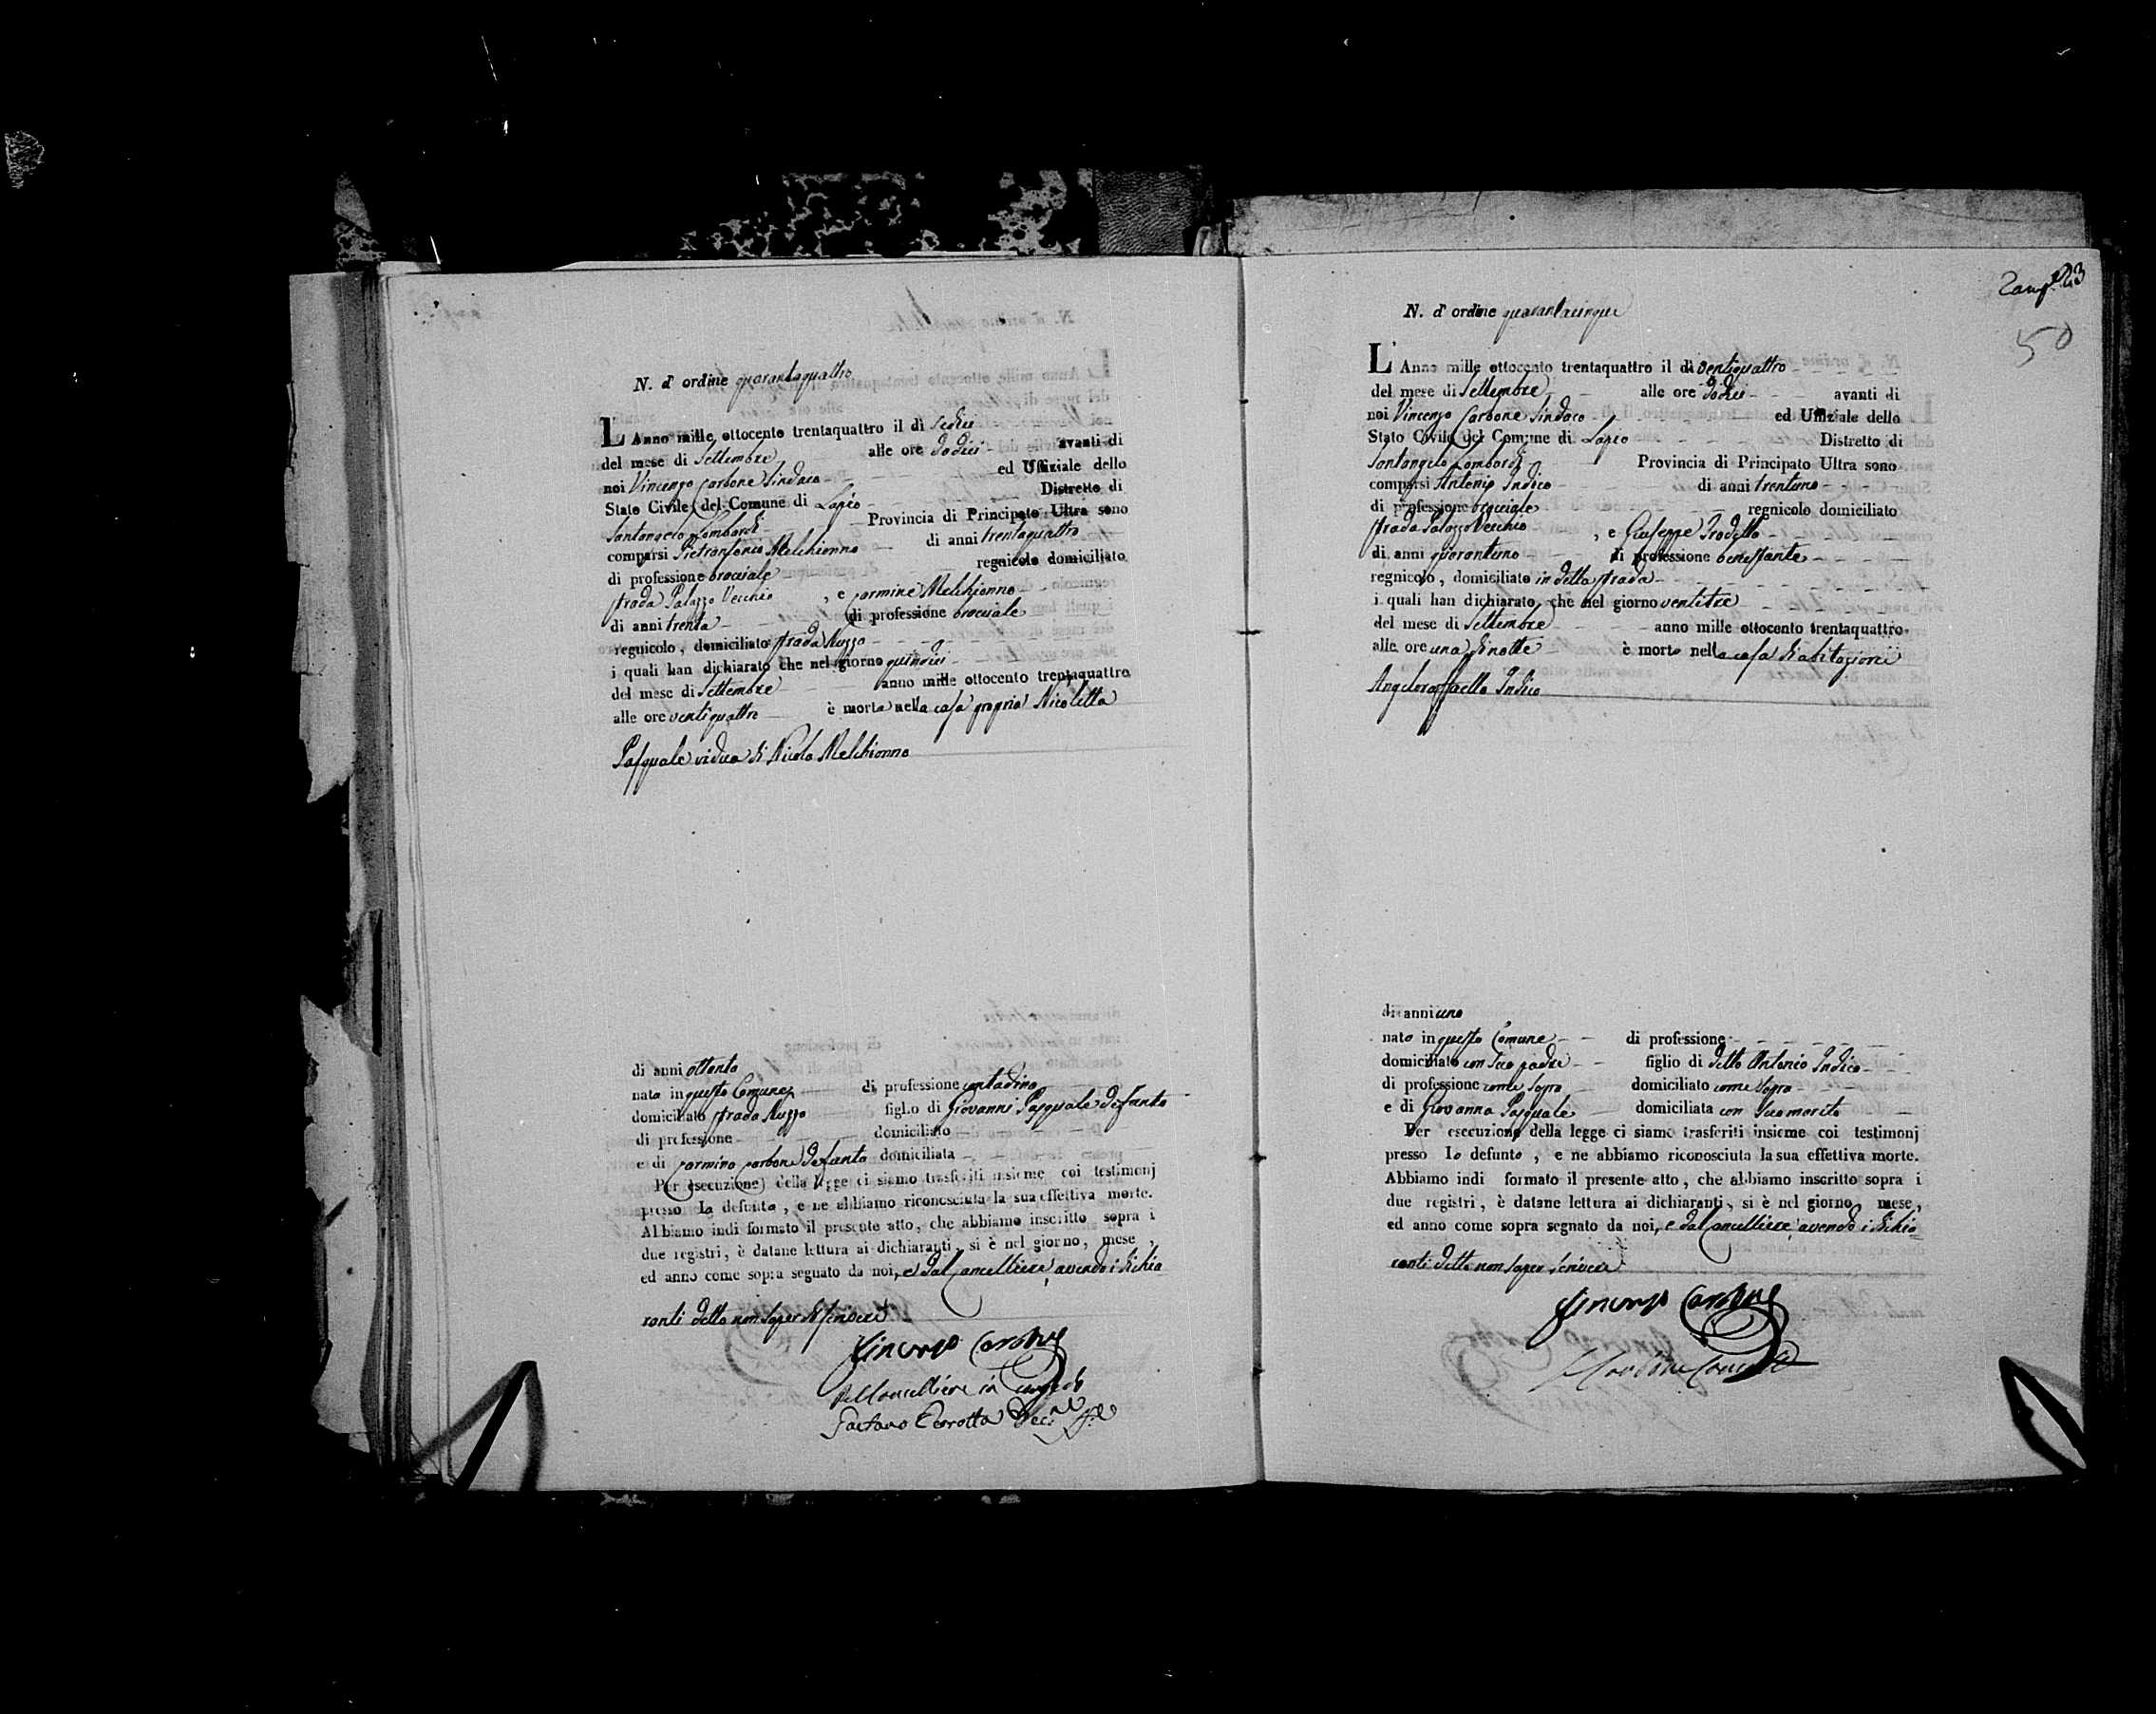 N. d' ordine quarantaquattro
L' Anno mille ottocento trentaquattro il dì sedici
del mese di Settembre alle ore dodici avanti di
noi Vincenzo Carbone Sindaco ed Uffiziale dello
Stato Civile del Comune di Lapio Distretto di
Santangelo Lombardi Provincia di Principato Ultra sono
comparsi Pietrantonio Melchionno di anni trentaquattro
di professione bracciale regnicolo domiciliato
strada Palazzo Vecchio , e Carmine Melchionno
di anni trenta di professione bracciale
regnicolo, domiciliato strada Ruzzo
i quali han dichiarato che nel giorno quindici
del mese di Settembre anno mille ottocento trentaquattro
alle ore ventiquattro è morta nella casa propria Nicoletta
Pasquale vidua di Nicola Melchionno
di anni ottanta
nata in questo Comune di professione contadina
domiciliato strada Ruzzo figlio di Giovanni Pasquale defunto
di professione domiciliato
e di Carmina Carbone defunta domiciliata
Per esecuzione della legge ci siamo trasferiti insieme coi testimonj
presso la defunta, e ne abbiamo riconosciuta la sua effettiva morte.
Abbiamo indi formato il presente atto, che abbiamo inscritto sopra i
due registri, è datane lettura ai dichiaranti, si è nel giorno, mese,
ed anno come sopra segnato da noi, e dal Cancelliere avendo i dichia
ranti detto non saper scrivere
Vincenzo Carbone
Pel Cancelliere in
Gaetano
23
50
N. d' ordine quarantacinque
L' Anno mille ottocento trentaquattro il dì ventiquattro
del mese di Settembre alle ore dodici avanti di
noi Vincenzo Carbone Sindaco ed Uffiziale dello
Stato Civile del Comune di Lapio Distretto di
Santangelo Lombardi Provincia di Principato Ultra sono
comparsi Antonio Indico di anni trentuno
di professione bracciale regnicolo domiciliato
strada Palazzo Vecchio , e Giuseppe
di anni quarantuno di professione benestante
regnicolo, domiciliato in detta strada
i quali han dichiarato, che nel giorno ventitre
del mese di Settembre anno mille ottocento trentaquattro
alle ore una di notte è morto nella casa di abitazione
Angeloraffaello Indico
di anni uno
nato in questo Comune di professione
domiciliato con suo padre figlio di detto Antonio Indico
di professione come sopra domiciliato come sopra
e di Giovanna Pasquale domiciliata con suo marito
Per esecuzione della legge ci siamo trasferiti insieme coi testimonj
presso lo defunto, e ne abbiamo riconosciuta la sua effettiva morte.
Abbiamo indi formato il presente atto, che abbiamo inscritto sopra i
due registri, è datane lettura ai dichiaranti, si è nel giorno, mese,
ed anno come sopra segnato da noi, e dal Cancelliere avendo i dichia
ranti detto non saper scrivere
Vincenzo Carbone